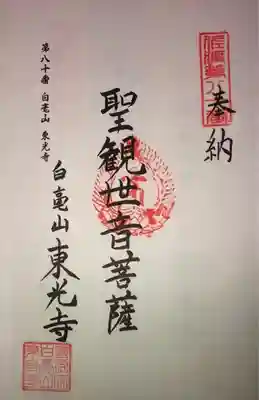 奉納
聖観世音菩薩
白毫山東光寺
第八十番 白毫山 東光寺